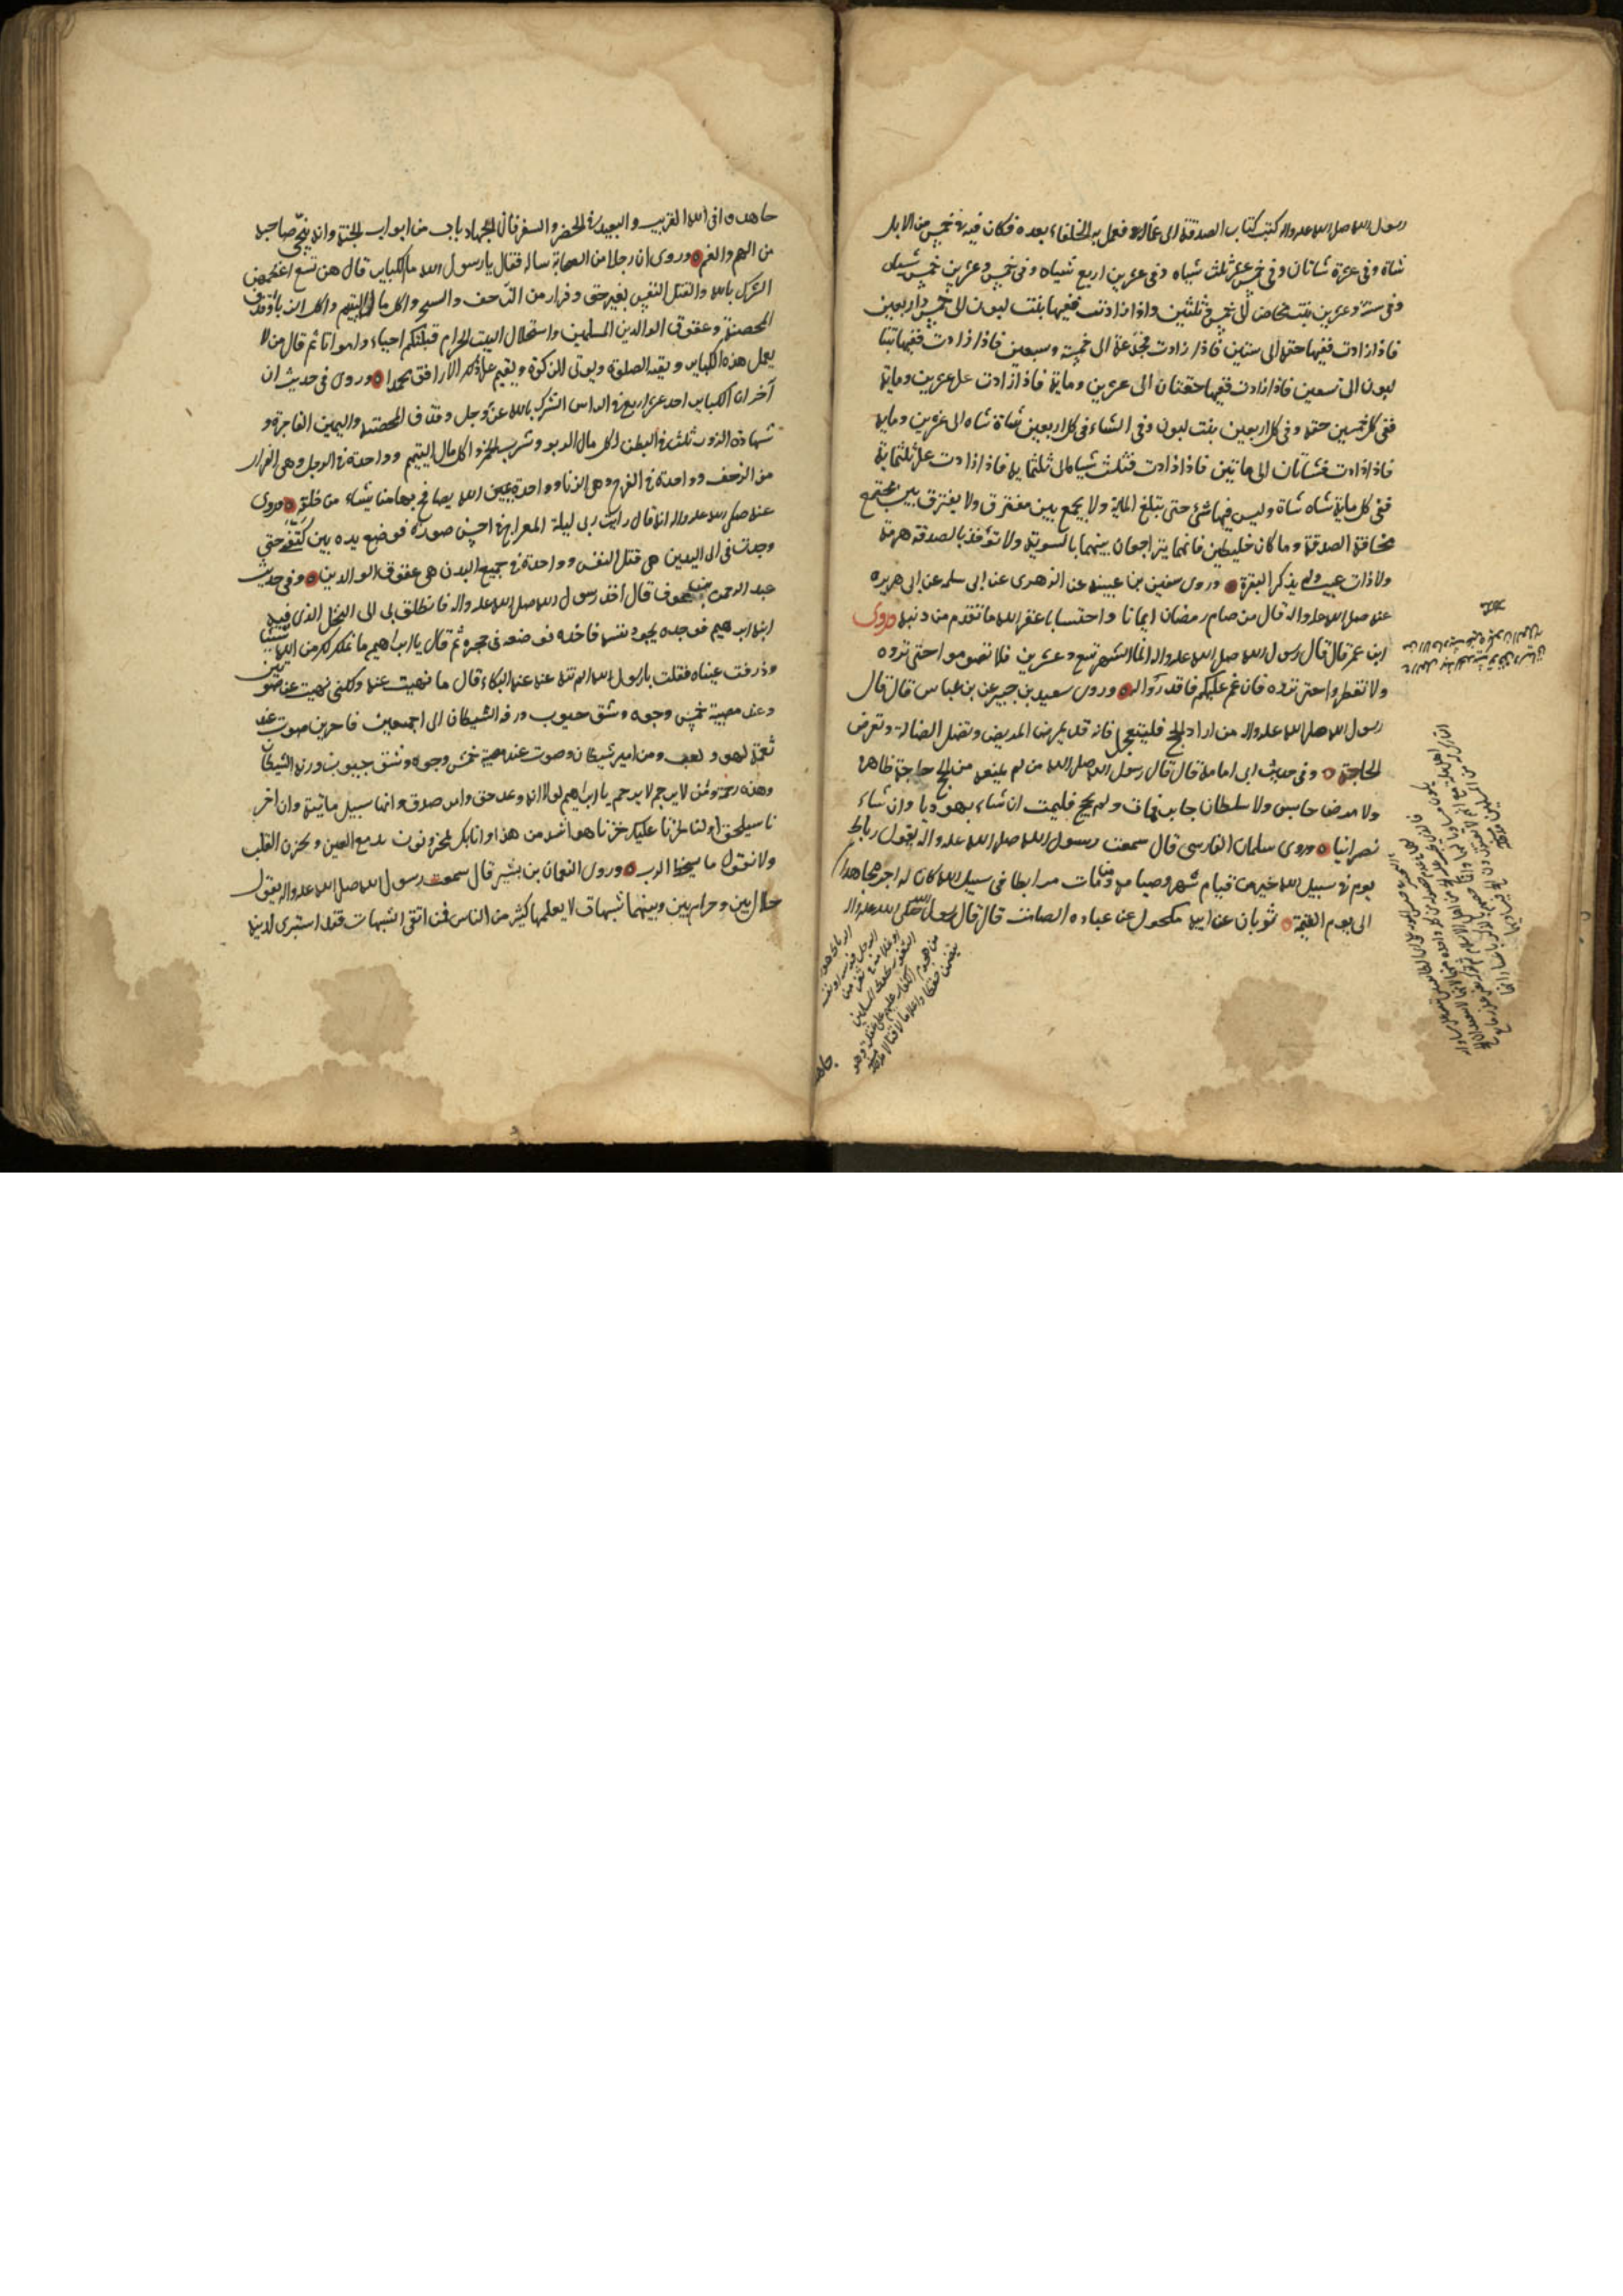 رسول الله صلى الله عليه واله كتب كتاب الصدقة الى عماله فعمل به الخلفاء بعده فكان فيه في خمس من الابل
شاة وفي عشرة شاتان وفي خمس عشر ثلث شياه وفي عشرين اربع شياه وفي خمس وعشرين خمس شياه
وفي ستة وعشرين بنت مخاض الى خمس وثلثين واذا زادت ففيها بنت لبون الى خمس واربعين
فاذا زادت ففيها حقه الى ستين فاذا زادت فجذعة الى خمسة وسبعين فاذا زادت ففيها بنتا
لبون الى تسعين فاذا زادت ففيها حقتان الى عشرين وماية فاذا زادت على عشرين وماية
ففي كل خمسين حقه وفي كل اربعين بنت لبون وفي الشاء في كل اربعين شاة شاه الى عشرين ومايه
فاذا زادت فشاتان الى ماتين فاذا زادت فثلث شياه الى ثلثمايه فاذا زادت على ثلثماية
ففي كل ماية شاه شاة وليس فيها شئ حتى تبلغ الماية ولا يجمع بين مفترق ولا يفترق بين مجتمع
مخافة الصدقة وما كان خليطين فانهما يتراجعان بينهما بالسوية ولا تؤخذ بالصدقة هرمة
ولا ذات عيب ولم يذكر البقرة وروى سفين بن عيينه عن الزهرى عن ابى سلمه عن ابى هريره
عنه صلى الله عليه واله قال من صام رمضان ايمانا واحتسابا غفر الله ما تقدم من ذنبه وروى
ابن عمر قال قال رسول الله صلى الله عليه واله انما الشهر تسع وعشرين فلا تصوموا حتى تروه
ولا تفطروا حتى تروه فان غم عليكم فاقدروا له وروى سعيد بن جبير عن بن عباس قال قال
رسول الله صلى الله عليه واله من اراد الحج فليتعجل فانه قد يمرض المريض وتضل الضالة وتعرض
الحاجة وفي حديث ابى امامة قال قال رسول الله صلى الله من لم يمنعه من الحج حاجة ظاهرة
ولا مرض حابس ولا سلطان جاير فمات ولم يحج فليمت ان شاء يهوديا وان شاء
نصرانيا وروى سلمان الفارسى قال سمعت رسول الله صلى الله عليه واله يقول رباط
يوم في سبيل الله خير من قيام شهر وصيامه ومن مات مرابطا في سبيل الله كان له اجر مجاهدا
الى يوم القيمة ثوبان عن ابيه مكحول عن عباده الصامت قال قال رسول الله صلى الله عليه واله
جاهد
جاهدوا في الله القريب والبعيد في الحضر والسفر فان الجهاد باب من ابواب الجنة وانه ينجى صاحبه
من الهم والغم وروى ان رجلا من الصحابة ساله فقال يا رسول الله ما الكباير قال هن تسع اعظمهن
الشرك بالله والقتل النفس بغير حق وفرار من الزحف والسحر واكل مال اليتيم واكل الربا وقذف
المحصنة وعقوق الوالدين المسلمين واستحلال البيت الحرام قبلتكم احياء وامواتا ثم قال من لا
يعمل هذه الكباير ويقيم الصلوة ويوتى الزكوة ويقيم على ذلك الا رافق محمدا وروى في حديث ان
آخر ان الكباير احد عشر اربع في الراس الشرك بالله عز وجل وقذف المحصنه واليمين الفاجرة و
شهادة الزور ثلث في البطن اكل مال الربو وشرب الخمر واكل مال اليتيم وواحدة في الرجل وهى الفرار
من الزحف وواحدة في الفرج وهى الزنا وواحدة يمين الله يصافح بها من يشاء من خلقه وروى
عنه صلى الله عليه واله انه قال رايت ربى ليلة المعراج في احسن صورة فوضع يده بين كتفى حتى
وجدت في الى اليدين هى قتل النفس وواحدة في جميع البدن هى عقوق الوالدين وفي حديث
عبد الرحمن بن عوف قال اخذ رسول الله صلى الله عليه واله فانطلق بى الى النخل الذى فيه
ابنه ابراهيم فوجده يجود بنفسه فاخذه فوضعه في حجره ثم قال يا ابراهيم ما نملك لك من الله شيئا
وذرفت عيناه فقلت يا رسول الله الم تنه عنه عن البكاء قال ما نهيت عنه ولكنى نهيت عن صوتين
وعند مصيبة خمش وجوه وشق جيوب ورنه الشيطان الى احمقين فاجرين صوت عند
نغمة لهو ولعب ومزامير شيطان وصوت عند مصيبة خمش وجوه وشق جيوب ورنه الشيطان
وهذه رحمة ومن لا يرحم لا يرحم يا ابراهيم لولا انه وعد حق وامر صدق وانها سبيل ماتية وان اخر
نا سيلحق اولنا لحزنا عليك حزنا هو اشد من هذا وانا بك لمحزونون تدمع العين ويحزن القلب
ولا نقول ما يسخط الرب وروى النعمان بن بشير قال سمعت رسول الله صلى الله عليه واله يقول
حلال بين وحرام بين وبينهما شبهات لا يعلمها كثير من الناس فمن اتقى الشبهات فقد استبرى لدينه